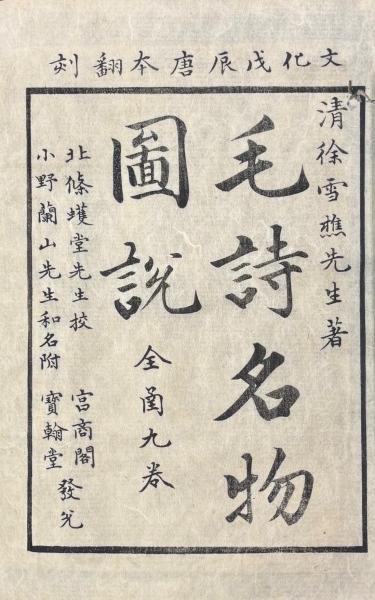 文化戊辰唐本翻刻
清徐雪樵先生著
毛詩名物
圖說
全函九卷
北條蠖堂先生挍
小野蘭山先生和名附
宮商閣
寶翰堂
發兌